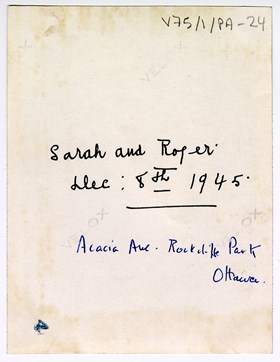 V75/1/PA-24
Sarah and Roger
Dec: 8th 1945.
Acacia Ave. Rockcliffe Park
Ottawa.